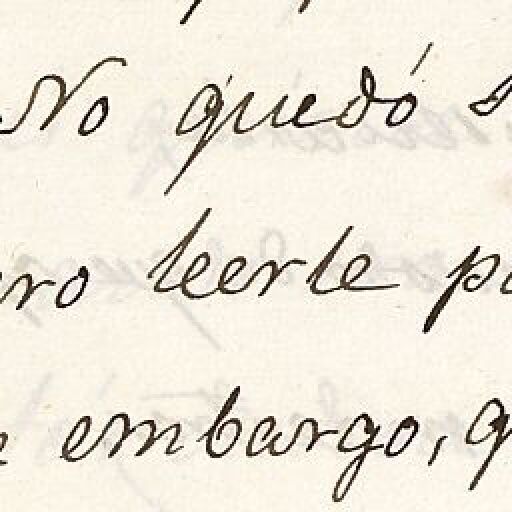 No quedó
leerle
embargo,